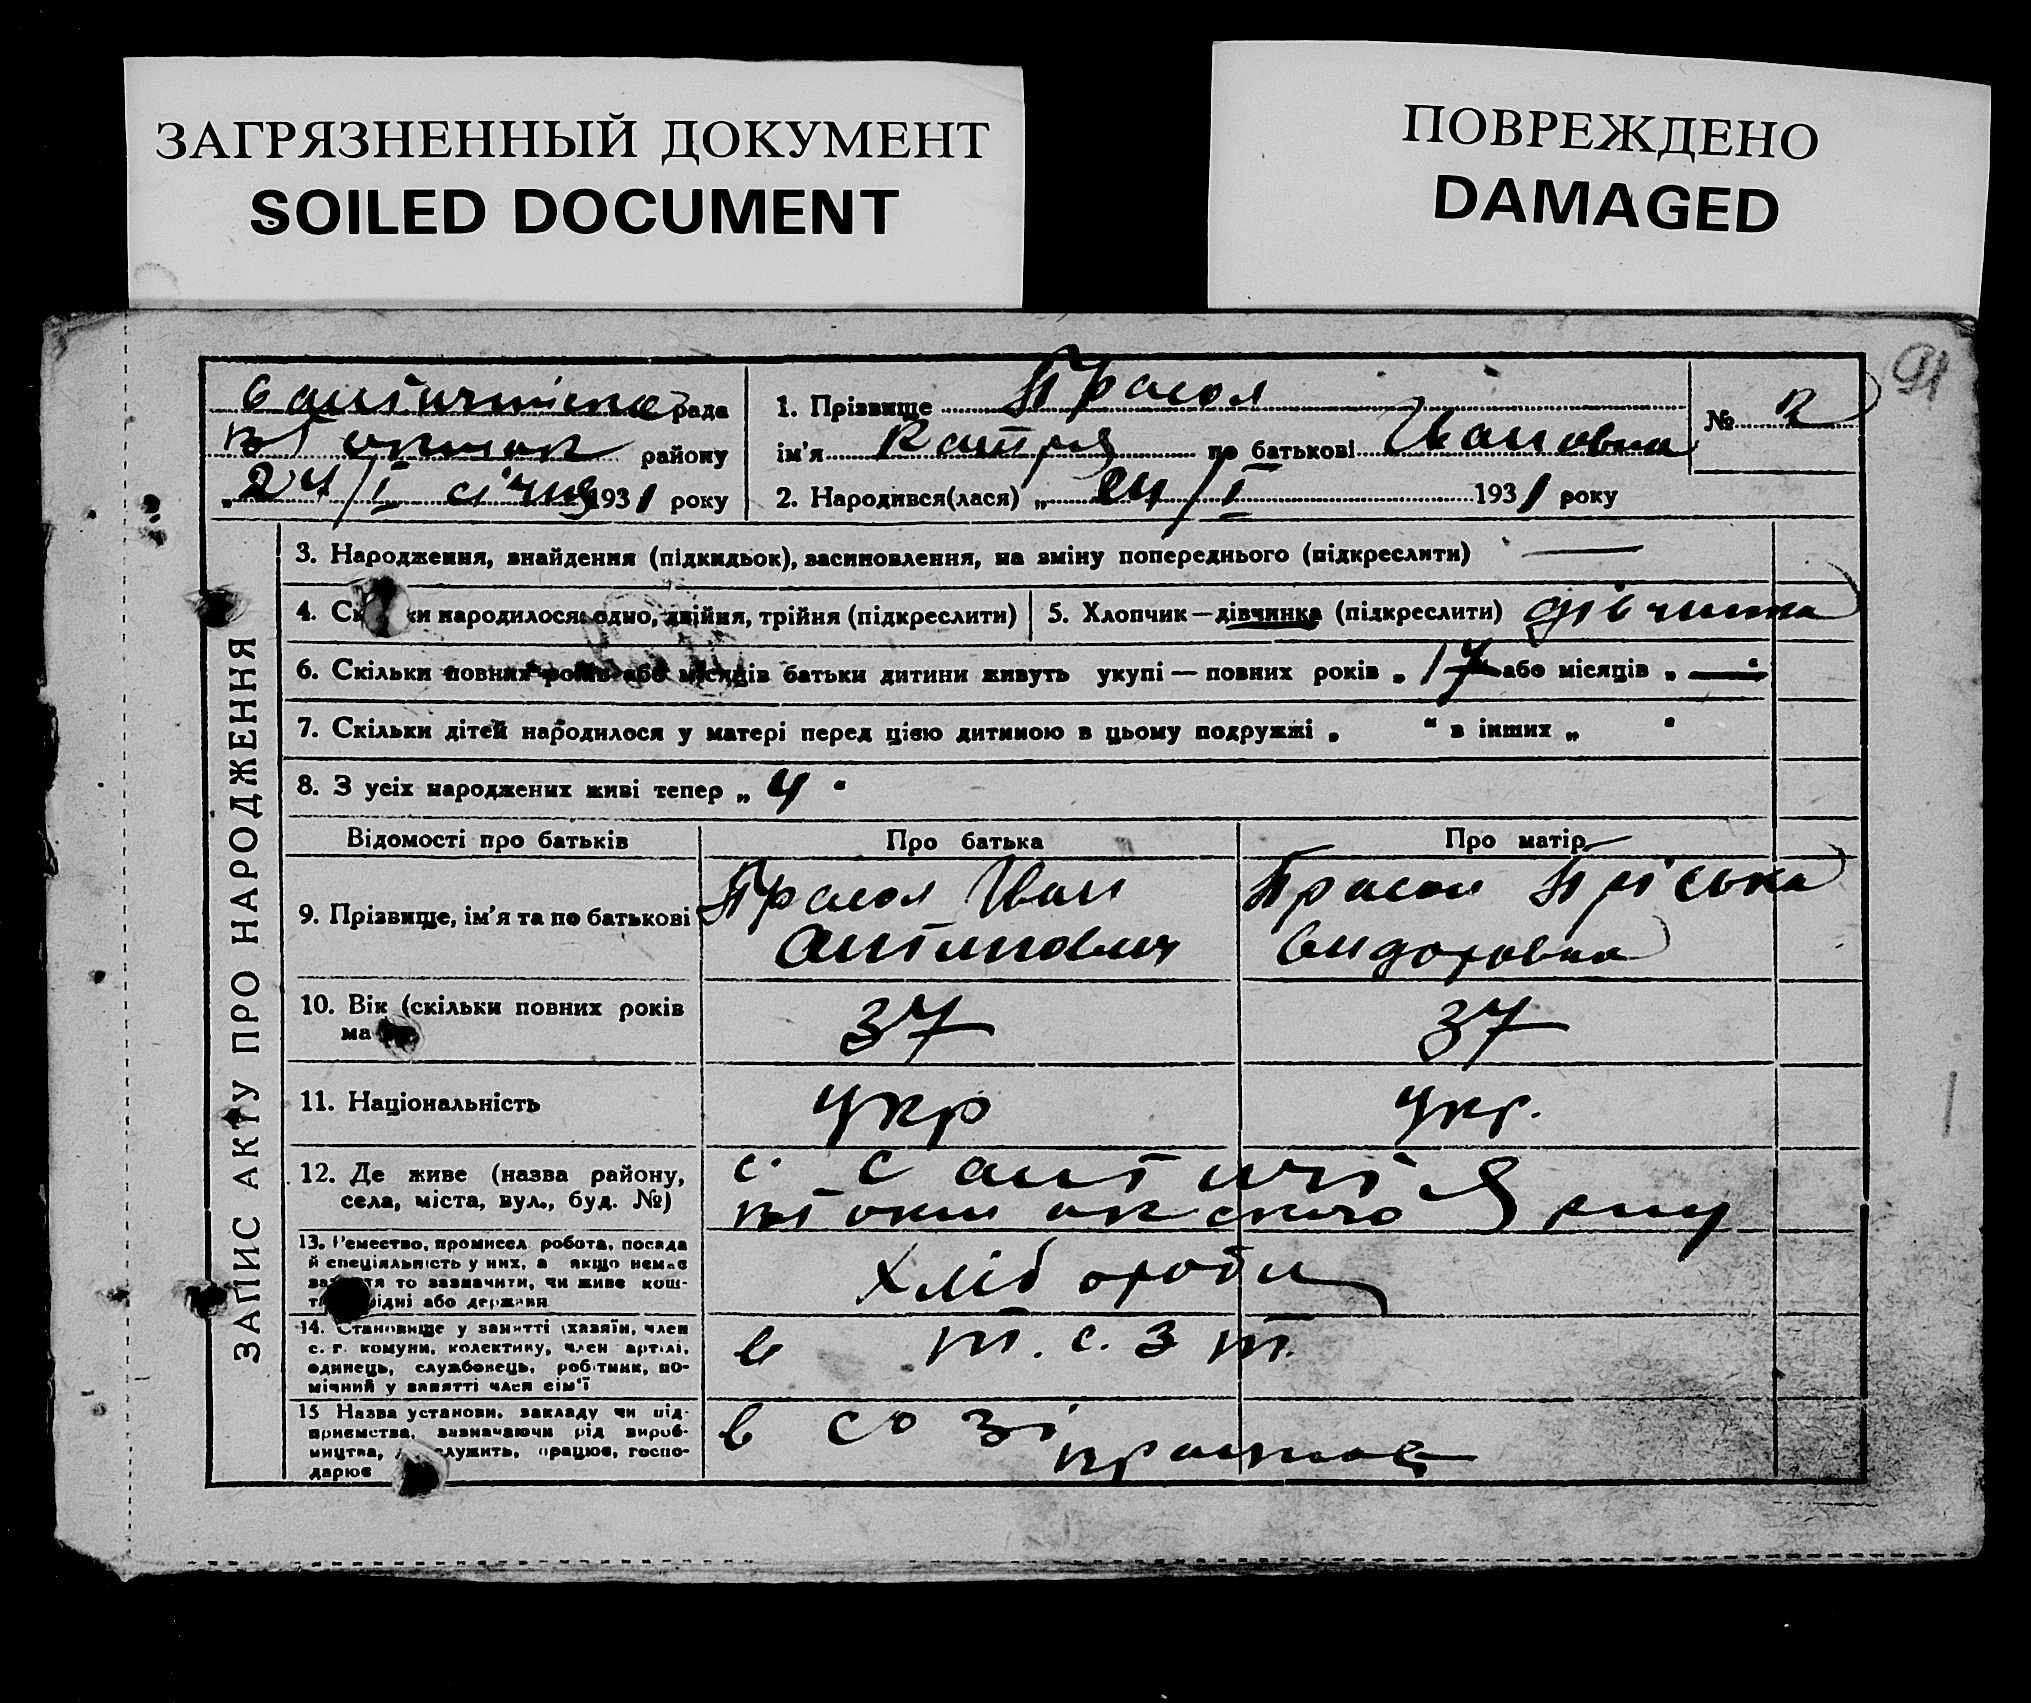 ЗАГРЯЗНЕННЫЙ ДОКУМЕНТ
SOILED DOCUMENT
ПОВРЕЖДЕНО
DAMAGED
91
рада
району
„24/I січня 1931 року
1. Прізвище Прасол
ім'я Катря по батькові Ивановна
2. Народився(лася) „ 24/I 1931 року
№ 2
ЗАПИС АКТУ ПРО НАРОДЖЕННЯ
3. Народження, знайдення (підкидьок), засиновлення, на зміну попереднього (підкреслити) —
4. Скільки народилося: одно, двійня, трійня (підкреслити)
5. Хлопчик — дівчинка (підкреслити) дівчинка
6. Скільки повних років або місяців батьки дитини живуть укупі — повних років „ 17 або місяців „ —
7. Скільки дітей народилося у матері перед цією дитиною в цьому подружжі „ “ в інших „
8. З усіх народжених живі тепер „ 4
Відомості про батьків
Про батька
Про матір
9. Прізвище, ім'я та по батькові
Прасол Иван
Антипович
Прасол Пріська
Сидоровна
10. Вік (скільки повних років
ма
37
37
11. Національність
укр
укр.
12. Де живе (назва району,
села, міста, вул., буд. №)
с.
13. Ремество, промисел робота, посада
й спеціяльність у них, а якщо немає
заняття то зазначити, чи живе кош-
рідні або держави
Хлібороби
14. Становище у занятті (хазяїн, член
с. г. комуни, колективу, член артілі,
одинець, службовець, робітник, по-
мічний у занятті член сім'ї
в т. с. з т.
15 Назва установи, закладу чи під-
приємства, зазначаючи рід вироб-
ництва, служить, працює, госпо-
дарює
в созі